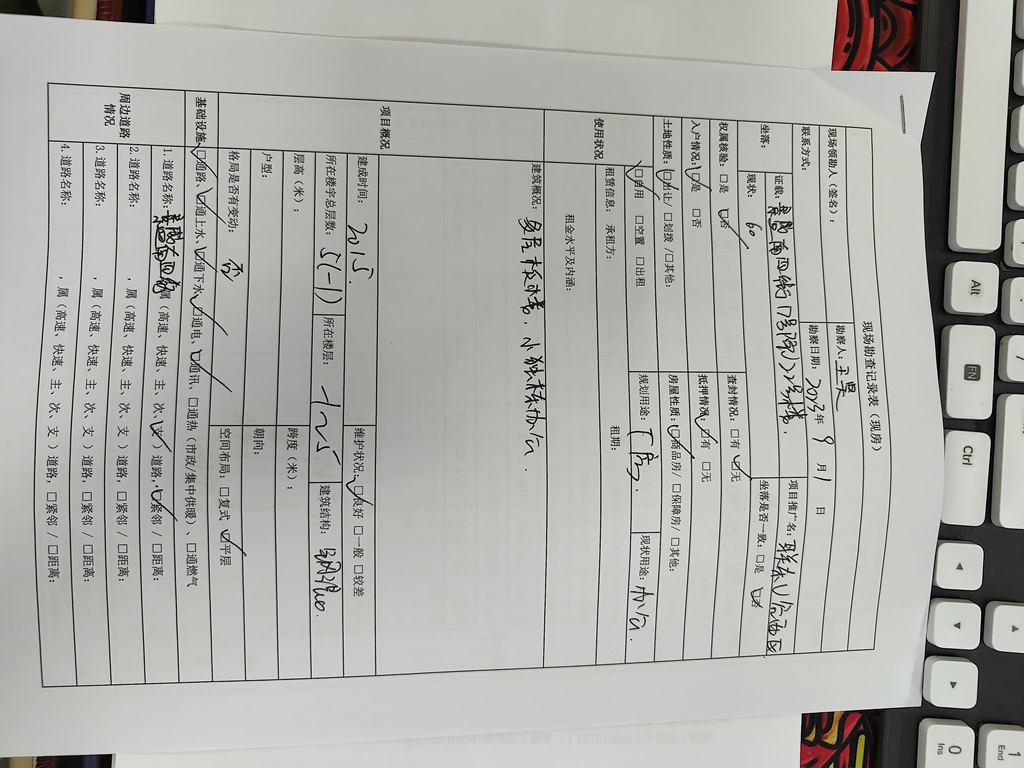 现场勘查记录表（现房）
现场领勘人（签名）： 勘察人：
联系方式： 勘察日期：2023年 9 月 1 日
坐落： 证载： 南四街17号院22号 项目推广名：联东U谷西区
现状：60 坐落是否一致：□是 ☑否
权属核验：□是 ☑否 查封情况：□有 ☑无
入户情况：☑是 □否 抵押情况：☑有 □无
土地性质：☑出让/□划拨/□其他： 房屋性质：☑商品房/□保障房/□其他：
使用状况 ☑自用 □空置 □出租 规划用途：厂房. 现状用途：办公.
租赁信息： 承租方： 租期：
租金水平及内涵：
项目概况
建筑概况： 小独栋办公.
建成时间：2015. 维护状况：☑良好 □一般 □较差
所在楼宇总层数：5(-1) 所在楼层：-1~5 建筑结构：钢混.
层高（米）： 跨度（米）：
户型： 朝向：
格局是否有变动：否 空间布局：□复式 ☑平层
基础设施 ☑通路、☑通上水、☑通下水、☑通电、☑通讯、□通热（市政/集中供暖）、□通燃气
周边道路情况
1. 道路名称： 南四街 属（高速、快速、主、次、支）道路，☑紧邻/□距离：
2. 道路名称： ，属（高速、快速、主、次、支）道路，□紧邻/□距离：
3. 道路名称： ，属（高速、快速、主、次、支）道路，□紧邻/□距离：
4. 道路名称： ，属（高速、快速、主、次、支）道路，□紧邻/□距离：
Alt
FN
Ctrl
0
Ins
1
End